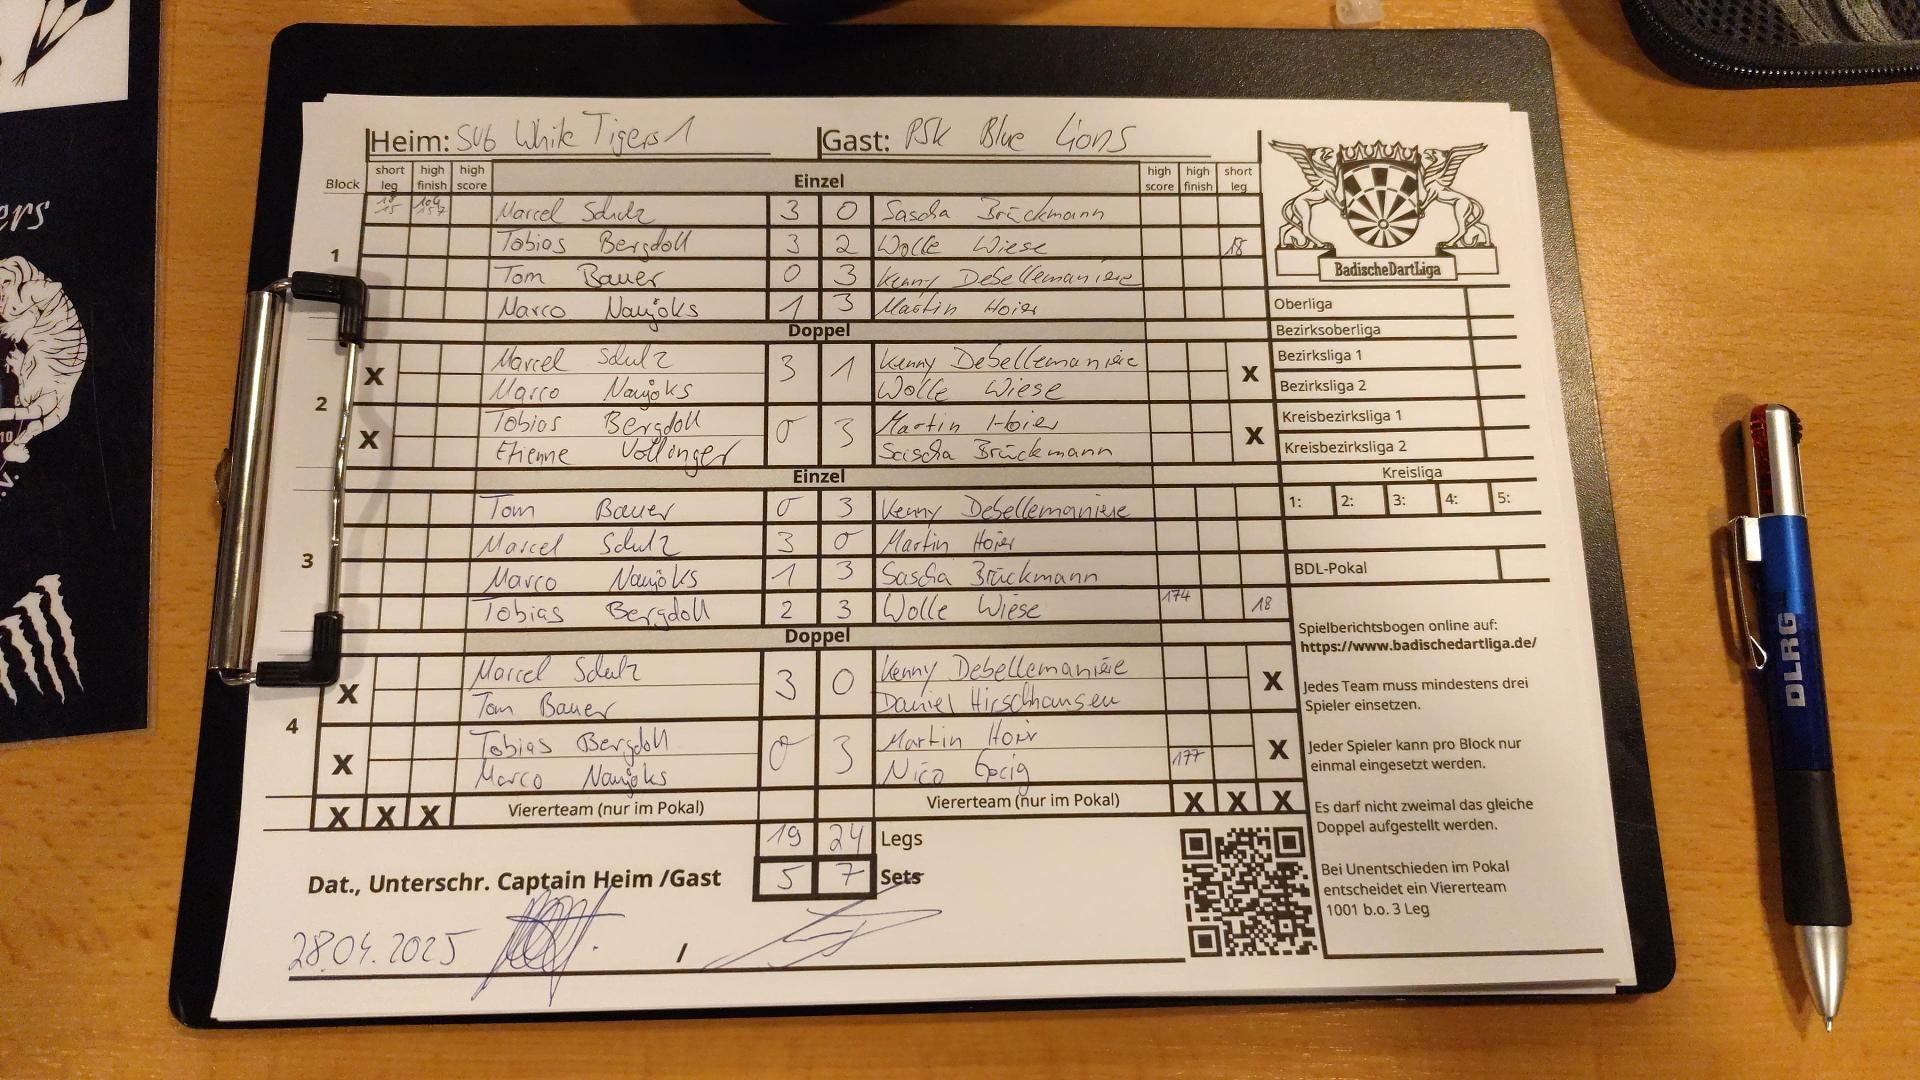 Heim: SVb White Tigers 1 Gast: PSK Blue Lions
Block short leg high finish high score Einzel high score high finish short leg
1
18 15 104 157 Marcel Schulz 3 0 Sascha Brückmann
Tobias Bergdoll 3 2 Wolle Wiese 18
Tom Bauer 0 3 Kenny Debellemanière
Marco Naujoks 1 3 Martin Hoier
Doppel
2
X Marcel Schulz 3 1 Kenny Debellemanière X
Marco Naujoks Wolle Wiese
X Tobias Bergdoll 0 3 Martin Hoier X
Etienne Vollinger Sascha Brückmann
Einzel
3
Tom Bauer 0 3 Kenny Debellemanière
Marcel Schulz 3 0 Martin Hoier
Marco Naujoks 1 3 Sascha Brückmann
Tobias Bergdoll 2 3 Wolle Wiese 174 18
Doppel
4
X Marcel Schulz 3 0 Kenny Debellemanière X
Tom Bauer Daniel Hirschhausen
X Tobias Bergdoll 0 3 Martin Hoier X
Marco Naujoks Nico 177
X X X Viererteam (nur im Pokal) Viererteam (nur im Pokal) X X X
19 24 Legs
Dat., Unterschr. Captain Heim /Gast 5 7 Sets
28.04.2025 /
BadischeDartLiga
Oberliga
Bezirksoberliga
Bezirksliga 1
Bezirksliga 2
Kreisbezirksliga 1
Kreisbezirksliga 2
Kreisliga
1: 2: 3: 4: 5:
BDL-Pokal
Spielberichtsbogen online auf:
https://www.badischedartliga.de/
Jedes Team muss mindestens drei
Spieler einsetzen.
Jeder Spieler kann pro Block nur
einmal eingesetzt werden.
Es darf nicht zweimal das gleiche
Doppel aufgestellt werden.
Bei Unentschieden im Pokal
entscheidet ein Viererteam
1001 b.o. 3 Leg
DLRG
ers
10
.V.